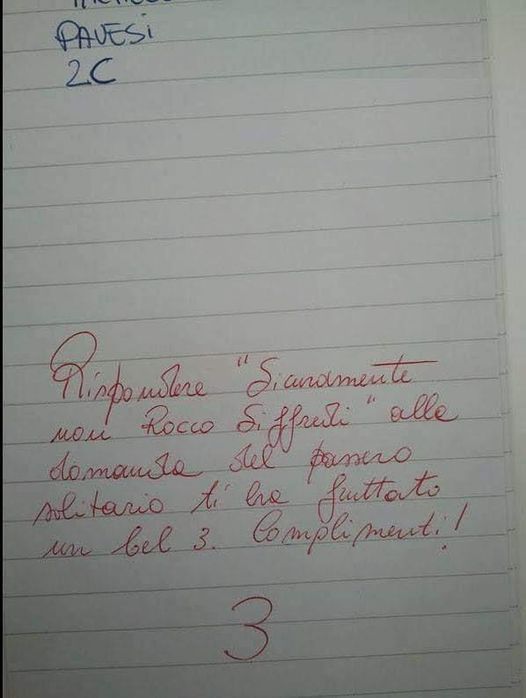 PAVESI
2C
Rispondere "Sicuramente
non Rocco Siffredi" alla
domanda del passero
solitario ti ha fruttato
un bel 3. Complimenti!
3